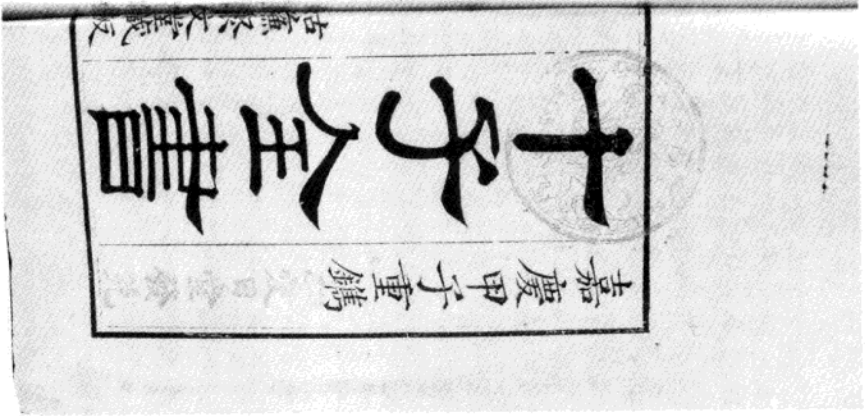 嘉慶甲子重鐫
十子全書
姑蘇聚文堂藏板